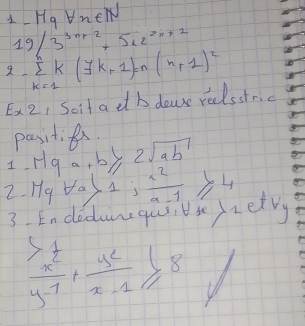 1 - Mq ∀n∈ℕ
19/3^{3n+2} + 5x2^{3n+2}
2 - Σ_{k=1}^{n} k (3k+1)=n(n+1)²
Ex2: Soit a et b deux réels stric
positifs.
1 - Mq a+b ≥ 2√ab
2 - Mq ∀a>1 ; a²/(a-1) ≥ 4
3 - En déduire que, ∀x>1 et ∀y
>1
x²/(y-1) + y²/(x-1) ≥ 8